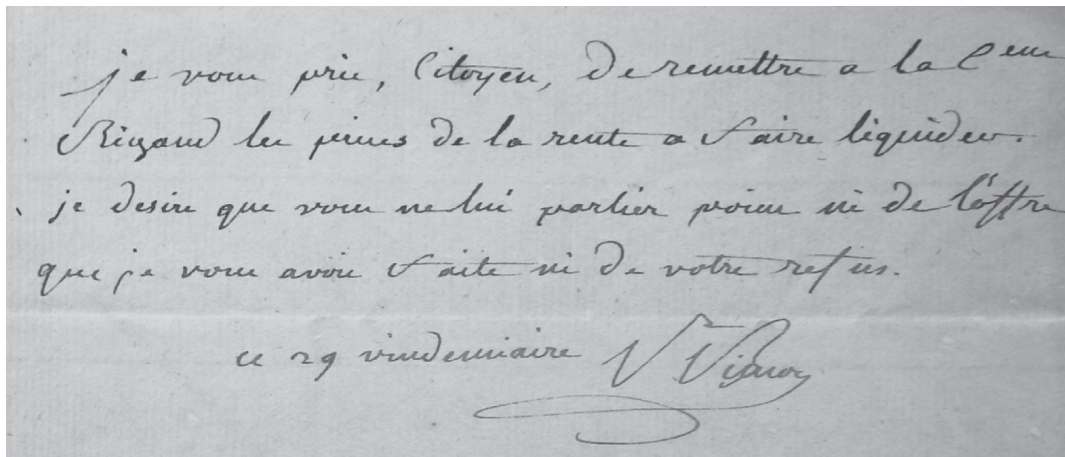 je vous prie, Citoyen, de remettre a la C^enne
Rigaud les pieces de la rente a faire liquider.
je desire que vous ne lui parlier point ni de l'offre
que je vous avois faite ni de votre refus.
ce 29 vendemiaire